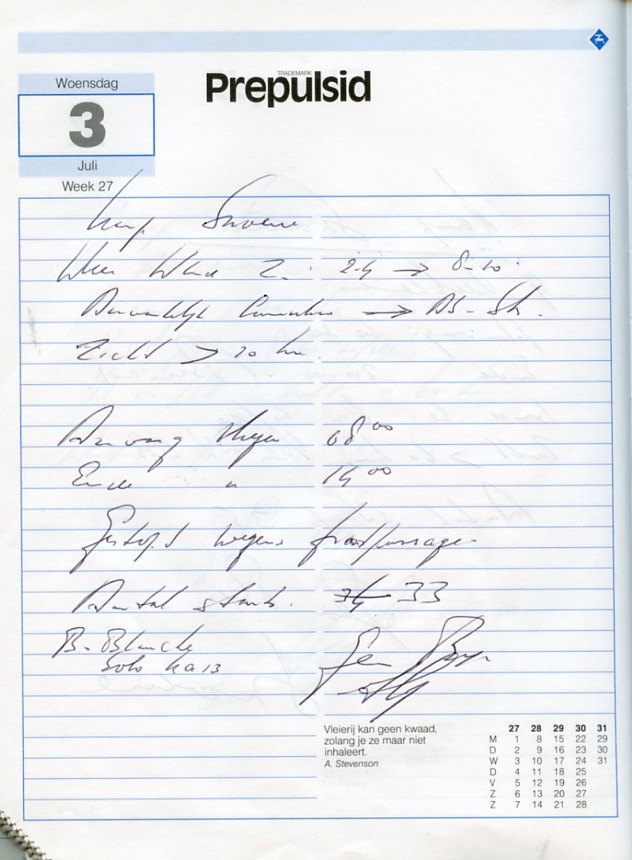 Woensdag
TRADEMARK
Prepulsid
3
Juli
Week 27
Wind Z. 2-4 → 8-10
Aanvankelijk Cumulus → AS-Sk.
Zicht > 10 km.
Aanvang vliegen 08 00
Einde " 14 00
Gestopt wegens frontpassage
Aantal starts. 34 33
B. Blancke
Solo Ka 13
Vleierij kan geen kwaad,
zolang je ze maar niet
inhaleert.
A. Stevenson
27 28 29 30 31
M 1 8 15 22 29
D 2 9 16 23 30
W 3 10 17 24 31
D 4 11 18 25
V 5 12 19 26
Z 6 13 20 27
Z 7 14 21 28